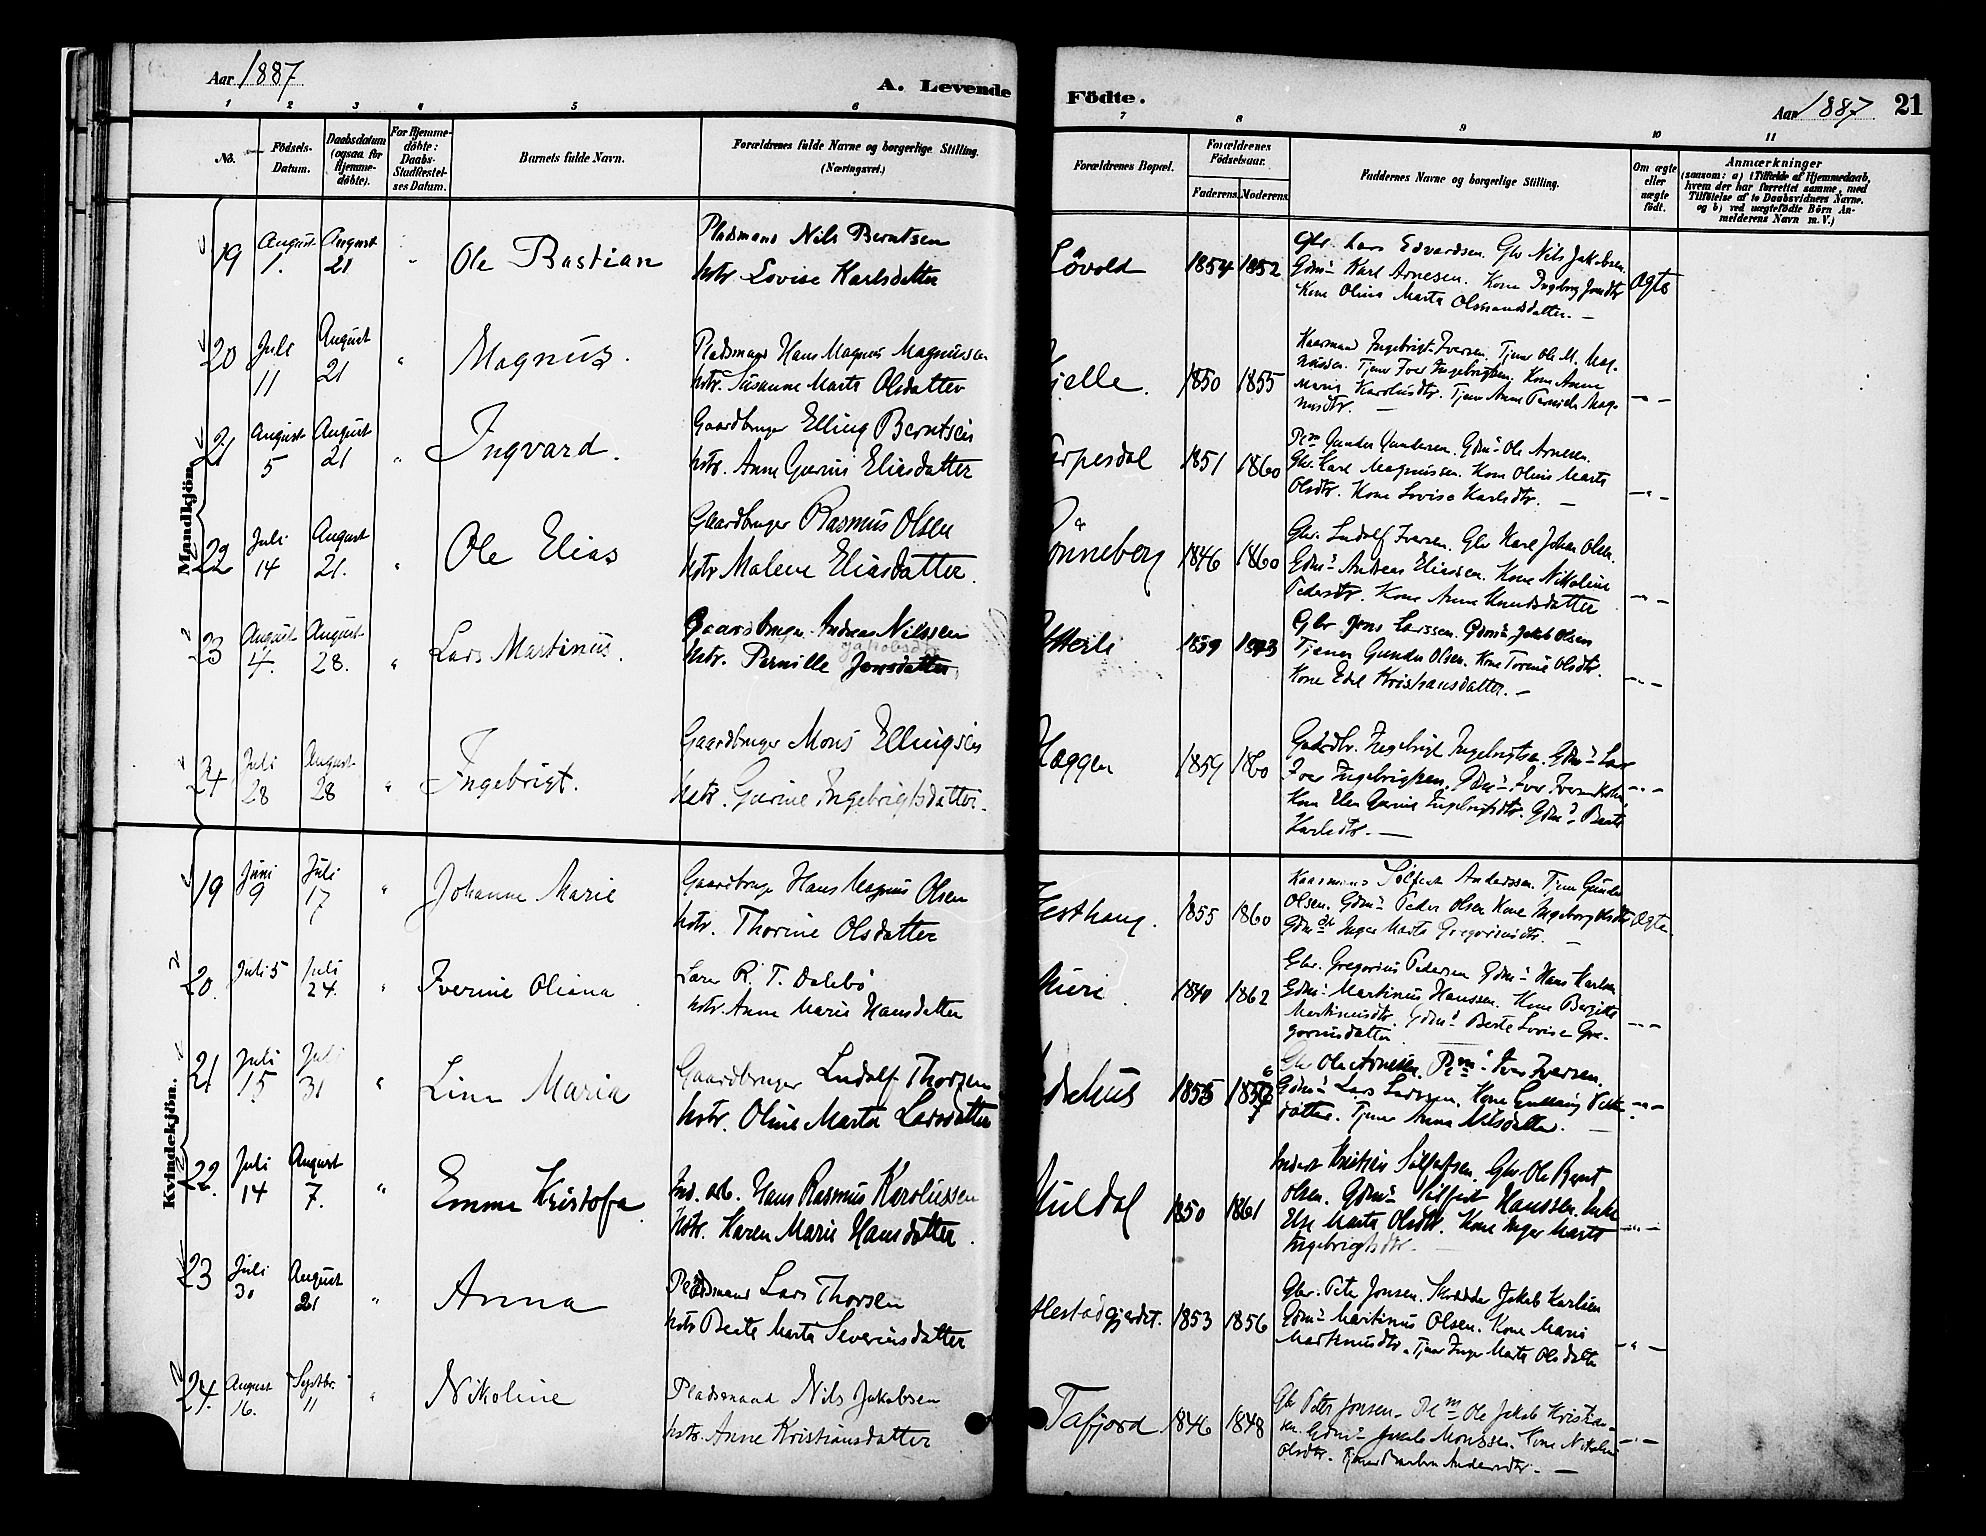 Aar 1887
A. Levende Födte.
Aar 1887 21
1 2 3 4 5 6 7 8 9 10 11
No.
Födsels-Datum.
Daabsdatum (ogsaa for Hjemme-döbte).
For Hjemme-döbte: Daabs-Stadfæstel-ses Datum.
Barnets fulde Navn.
Forældrenes fulde Navne og borgerlige Stilling. (Næringsvei.)
Forældrenes Bopæl.
Forældrenes Födselsaar.
Faderens. Moderens.
Faddernes Navne og borgerlige Stilling.
Om ægte eller uægte födt.
Anmærkninger
(saasom: a) i Tilfælde af Hjemmedaab,
hvem der har forrettet samme, med
Tilföielse af to Daabsvidners Navne.
og b) ved uægtefödte Börn An-
melderens Navn m. V.)
Mandkjön.
19 August 1. August 21 " Ole Bastian
Pladsmand Nils Berntsen
Hstr. Lovise Karlsdatter
Løvold 1854 1852
Gbr. Lars Edvardsen. Gbr Nils Jakobsen.
Gdm: Karl Arnesen. Kone Ingeborg Jonsdtr
Kone Oline Marta Olsdatter. —
Ægte
20 Juli 11 August 21 " Magnus.
Pladsmand Hans Magnus Magnussen
hstr. Susanne Marta Olsdatter
Kjelle. 1850 1855
Kaarmand Ingebrigt Iversen. Tjener Ole M. Mag-
nussen. Tjener Iver Ingebrigtsen. Kone Anne
Maria Karolusdtr. Tjener Anne Pernille Mag-
nusdtr. —
— " —
21 August 5 August 21 " Ingvard.
Gaardbruger Elling Berntsen
hstr. Anne Gurine Eliasdatter
1851 1860
Plm Gunder Gundersen. Gdm: Ole Arnesen.
Gbr. Karl Magnussen. Kone Oline Marta
Olsdtr. Kone Lovise Karlsdtr. —
— " —
22 Juli 14 August 21. " Ole Elias
Gaardbruger Rasmus Olsen
hstr Malene Eliasdatter.
Rønneberg 1846 1860
Gbr. Ludolf Iversen. Gbr Karl Johan Olsen.
Gdm: Andreas Eliassen. Kone Nikoline
Pedersdtr. Kone Anne Knudsdatter
— " —
23 August 4. August 28. " Lars Martinus.
Gaardbruger Andreas Nilssen
Jakobsdtr
hstr. Pernille Jonsdatter.
Ytterli 1859
Gbr Jens Larssen. Gdm: Jakob Olsen
Tjener Gunder Olsen. Kone Torine Olsdtr.
Kone Edel Kristiansdatter. —
— " —
24 Juli 28 August 28 " Ingebrigt.
Gaardbruger Mons Ellingsen
hstr. Gurine Ingebrigtsdatter.
Hæggen 1859 1860
Gaardbr. Ingebrigt Ingebrigtsen. Gdm: Lars
Iver Ingebrigtsen. Gdm: Iver
Kone Elen Gurine Ingebrigtsdtr. Gdm: Berte
Karlsdtr. —
— " —
Kvindekjön.
19 Juni 9 Juli 17 " Johanne Marie
Gaardbruger Hans Magnus Olsen
hstr. Thorine Olsdatter
Hesthaug. 1855 1860
Kaarmand Sølfest Anderssen. Tjener Gunder
Olsen. Gdm: Peder Olsen Kone Ingeborg Olsdtr
Gdm: Inger Marta Gregoriusdtr. —
Ægte.
20. Juli 5 Juli 24. " Iverine Oliana
Lærer R. T. Dalebø
hstr. Anne Marie Hansdatter
Muri. 1840 1862
Gbr. Gregorius Pedersen Gdm: Hans Karlsen
Gdm: Martinus Hanssen. Kone Bergitte
Martinusdtr. Gdm: Berte Lovise Gre-
goriusdatter.
— " —
21 Juli 15 Juli 31 " Lina Maria
Gaardbruger Ludolf Thorsen
hstr. Oline Marta Larsdatter
1855
Gbr Ole Arnesen. Plm: Iver Iversen.
Gdm: Lars Larssen. Kone
datter. Tjener Anna Nilsdatter. —
— " —
22. Juli 14 August 7. " Emma Kristofa
Ind. arb. Hans Rasmus Karolussen
hstr. Karen Marie Hansdatter.
Muldal 1850 1861
Inderst Kristen Sølfestsen. Gbr Ole Bernt
Olsen. Gdm: Sølfest Hanssen. Enke
Else Marta Olsdtr. Kone Inger Marta
Ingebrigtsdtr. —
— " —
23 Juli 30 August 21 " Anna
Pladsmand Lars Thorsen
hstr Berte Marta Severinsdatter
Hestadgjerdet. 1853 1856
Gbr. Peter Jonsen. Skrædder Jakob Karlsen
Gdm: Martinus Olsen. Kone Marie
Martinusdtr. Tjener Inger Marta Olsdatter
— " —
24. August 16. Septbr. 11 " Nikoline
Pladsmand Nils Jakobsen
hstr. Anne Kristiansdatter
Tafjord. 1846 1848
Gbr Peter Jonsen. Plm Ole Jakob Kristian-
sen. Gdm: Jakob Monssen. Kone Nikoline
Olsdtr. Tjener Andersdtr. —
— " —